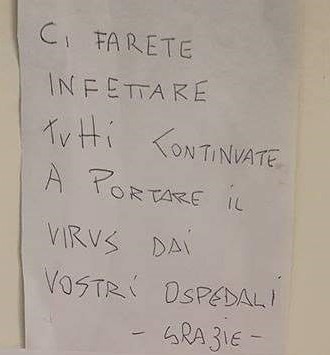 CI FARETE
INFETTARE
TUTTI CONTINUATE
A PORTARE IL
VIRUS DAI
VOSTRI OSPEDALI
- GRAZIE -